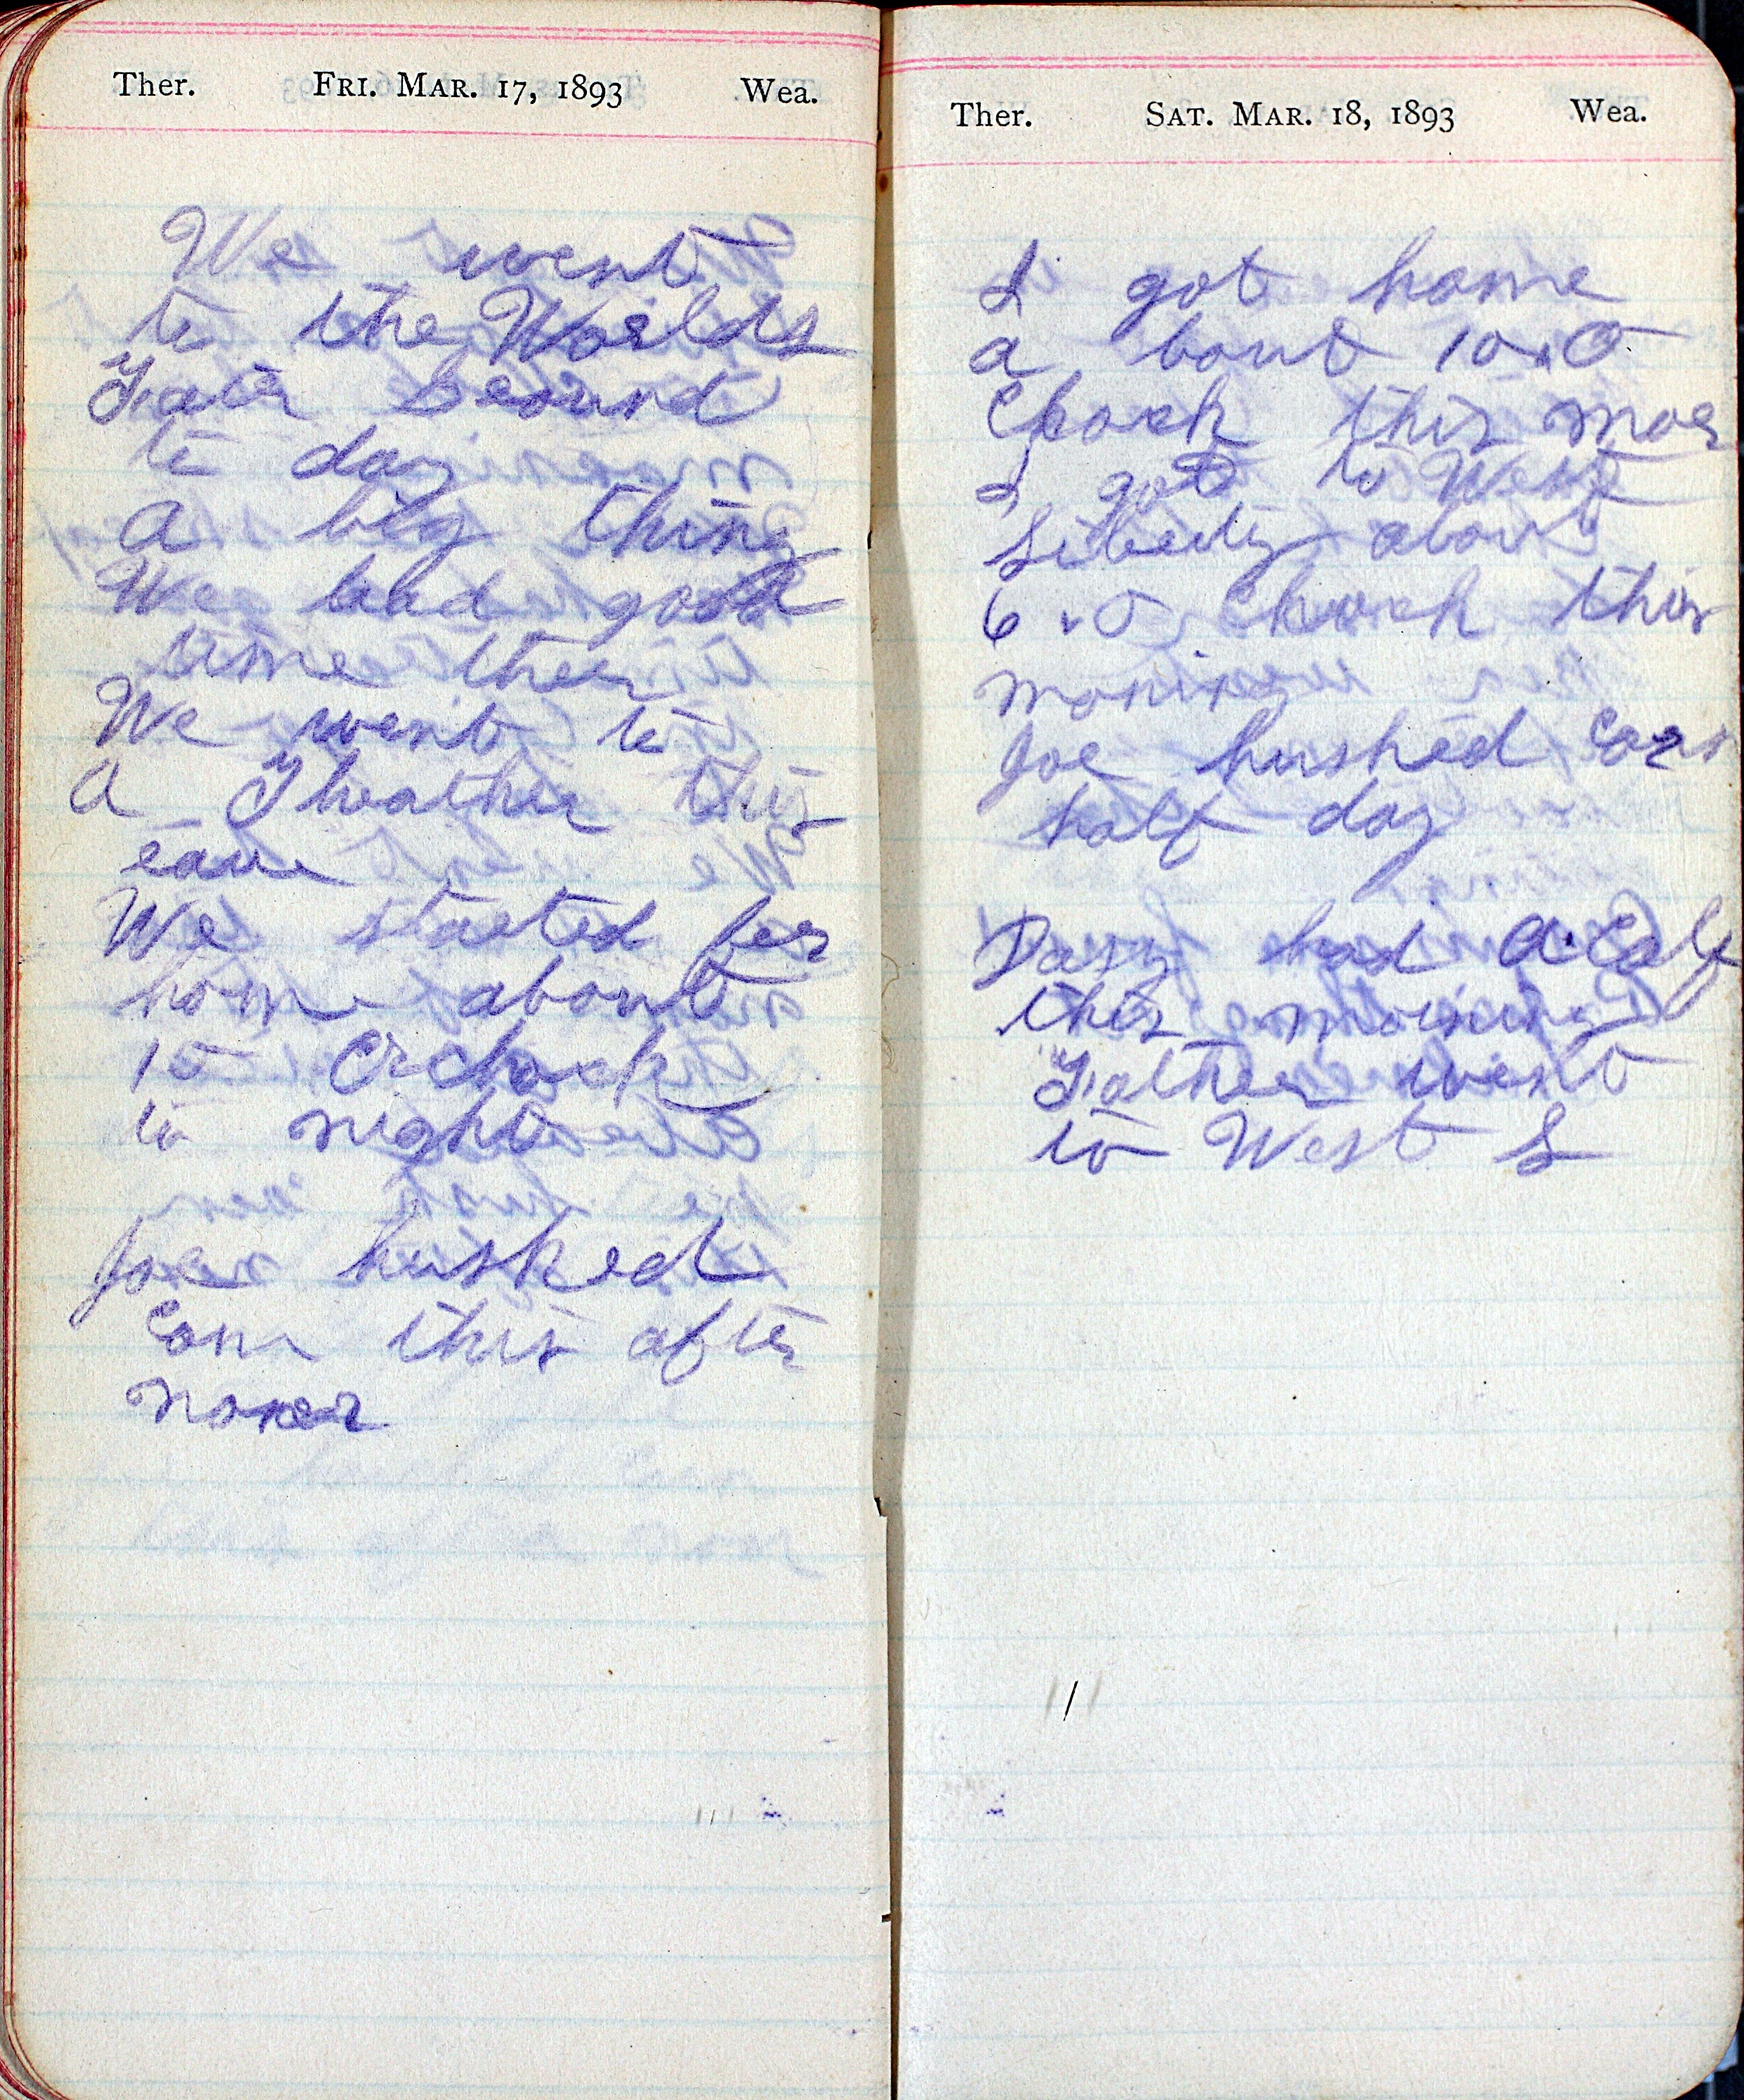 Ther. FRI. MAR. 17, 1893 Wea.
We went
to the Worlds
Fair Ground
to day
A big thing
We had good
time ther
We went to
a Theather this
eave
We started fer
home about
10 Oclock
to night
Joe husked
Corn this after
noner
Ther. SAT. MAR. 18, 1893 Wea.
I got home
a bout 10.O
Clock this mor
I got to West
Liberty about
6.O Clock this
moning
Joe husked Corn
half day
Dasy had a Calf
this morning
Father went
to West L